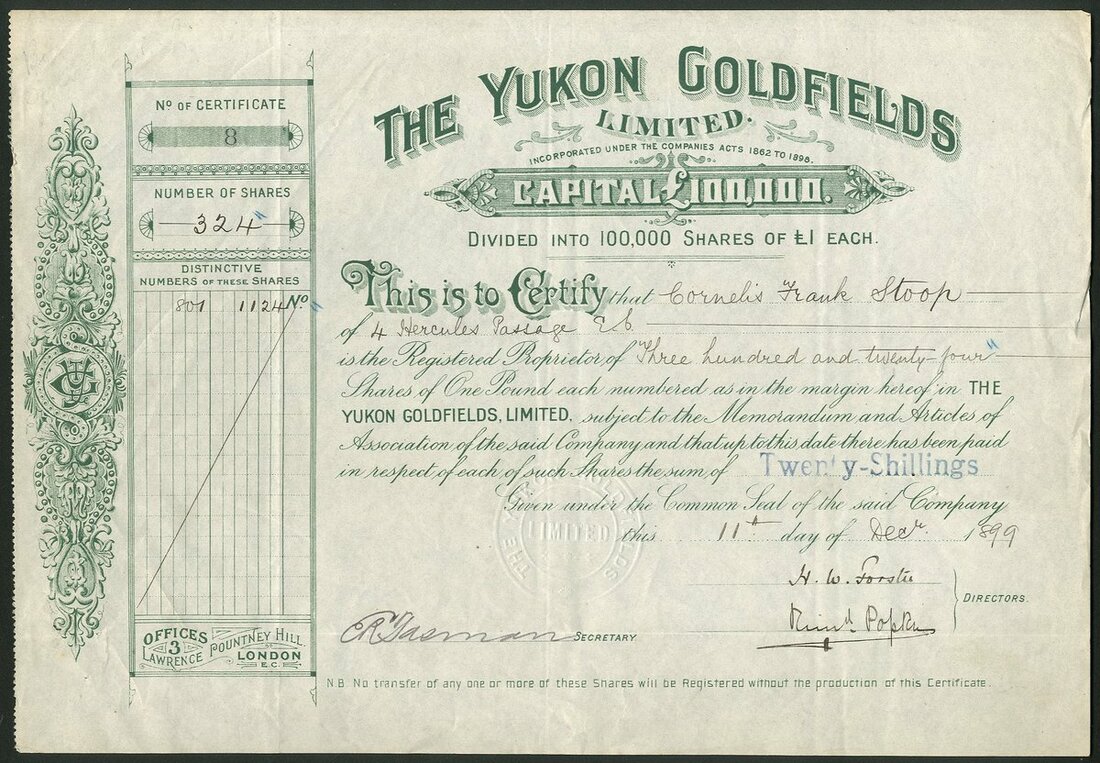 THE YUKON GOLDFIELDS
LIMITED.
INCORPORATED UNDER THE COMPANIES ACTS 1862 TO 1898.
CAPITAL £100,000.
DIVIDED INTO 100,000 SHARES OF £1 EACH.
No OF CERTIFICATE
8
NUMBER OF SHARES
324
DISTINCTIVE
NUMBERS OF THESE SHARES
801 1124 No
This is to Certify that Cornelis Frank Stoop
of 4 Hercules Passage E.C.
is the Registered Proprietor of Three hundred and twenty-four
Shares of One Pound each numbered as in the margin hereof in THE
YUKON GOLDFIELDS, LIMITED, subject to the Memorandum and Articles of
Association of the said Company and that up to this date there has been paid
in respect of each of such Shares the sum of Twenty-Shillings
Given under the Common Seal of the said Company
this 11th day of Decr 1899
THE YUKON GOLDFIELDS
LIMITED
H. W. Forster
DIRECTORS.
SECRETARY
OFFICES
3
LAWRENCE POUNTNEY HILL
LONDON
E.C.
N.B. No transfer of any one or more of these Shares will be Registered without the production of this Certificate.